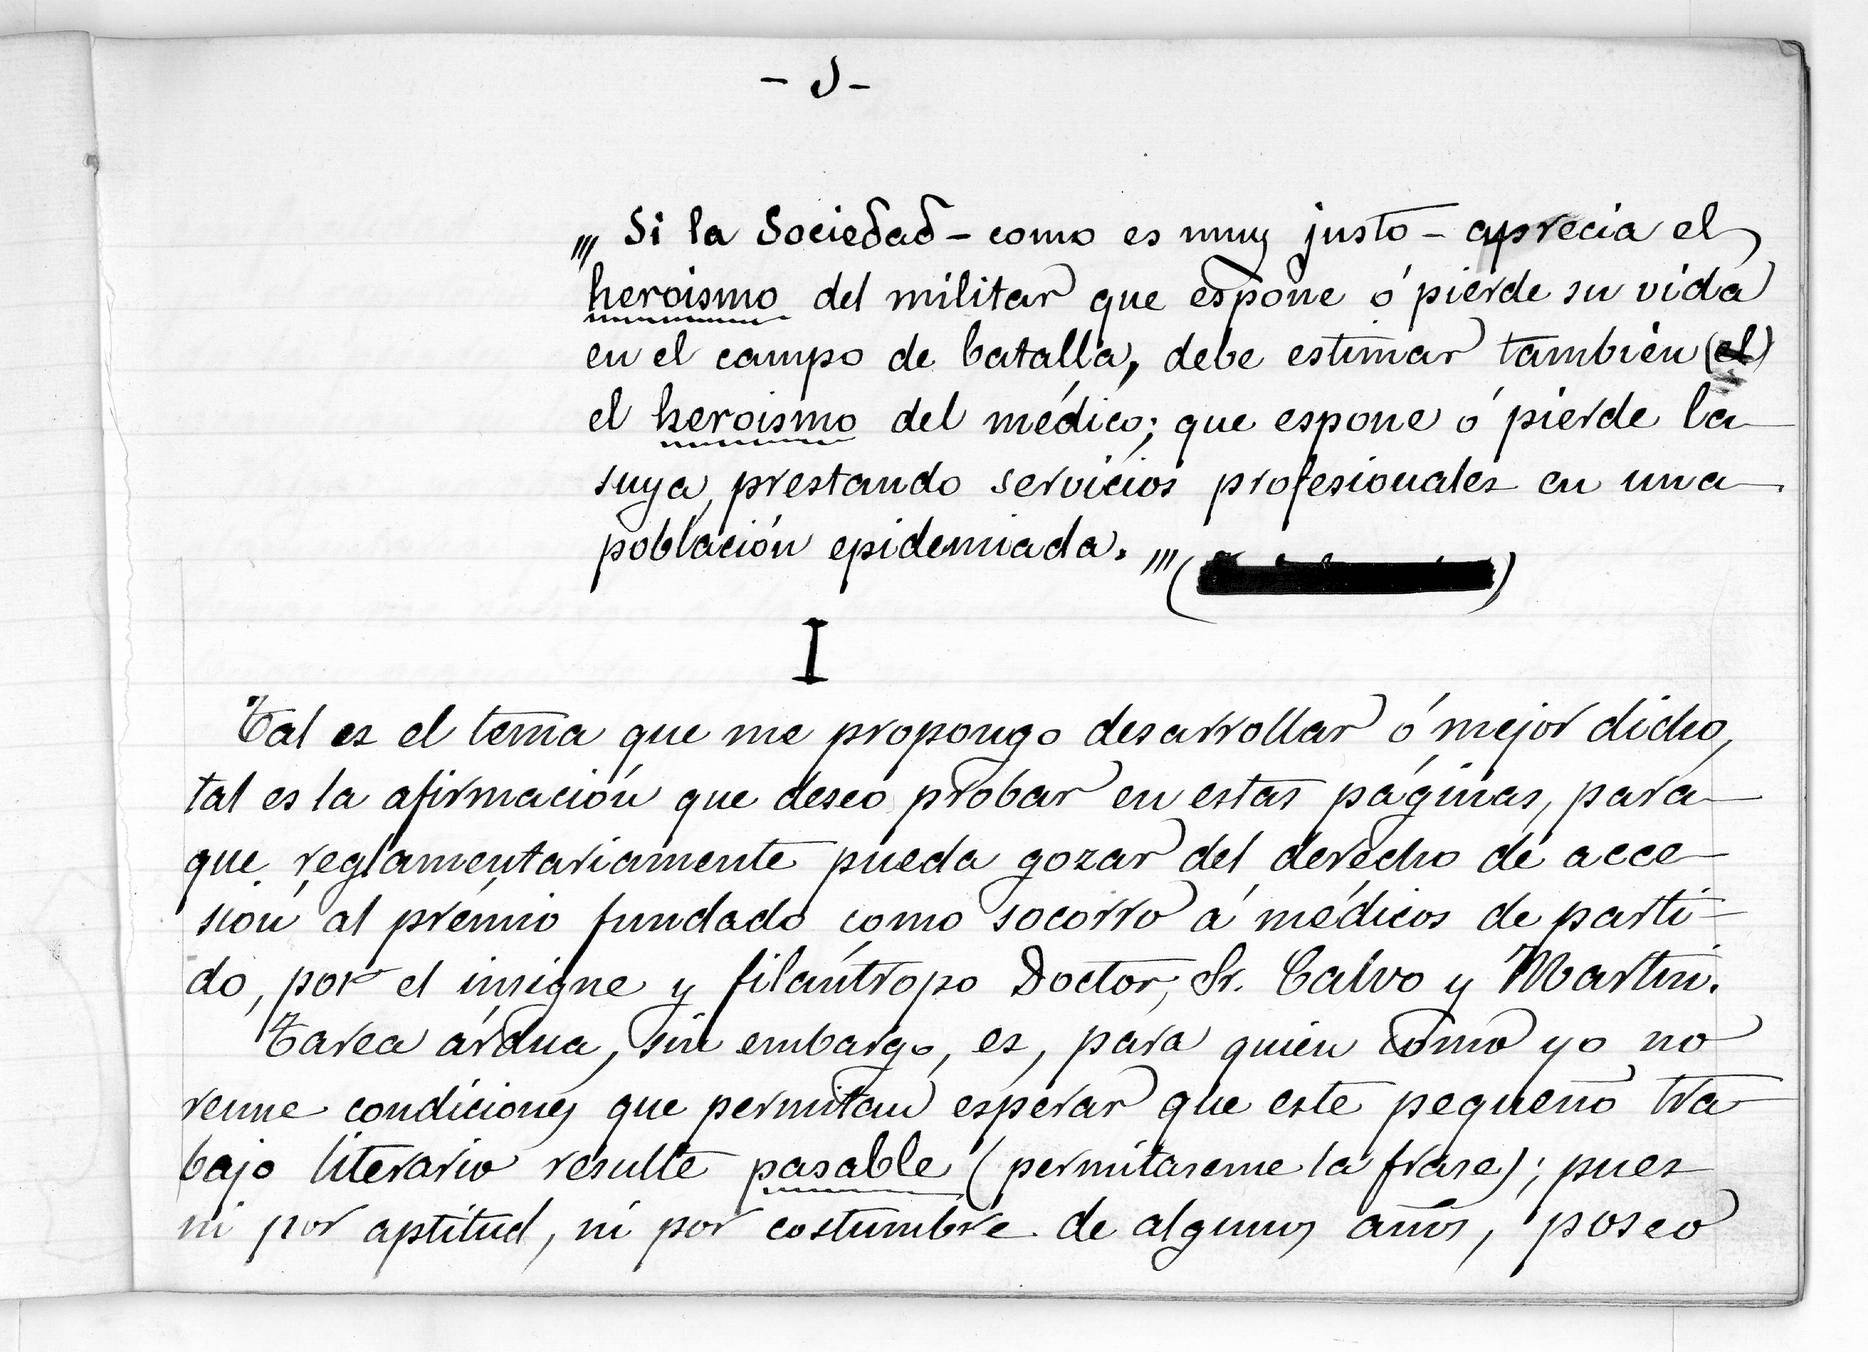 - J -
„ Si la Sociedad - como es muy justo - aprecia el
heroismo del militar que espone ó pierde su vida
en el campo de batalla, debe estimar también (el)
el heroismo del médico; que espone ó pierde la
suya, prestando servicios profesionales en una
población epidemiada. „ ( )
I
Tal es el tema que me propongo desarrollar ó mejor dicho,
tal es la afirmación que deseo probar en estas páginas, para
que reglamentariamente pueda gozar del derecho de acce-
sión al premio fundado como socorro á médicos de parti-
do, por el insigne y filántropo Doctor, Sr. Calvo y Martin.
Tarea árdua, sin embargo, es, para quien como yo no
reune condiciones que permitan esperar que este pequeño tra-
bajo literario resulte pasable (permitaseme la frase); pues
ni por aptitud, ni por costumbre de algunos años, poseo